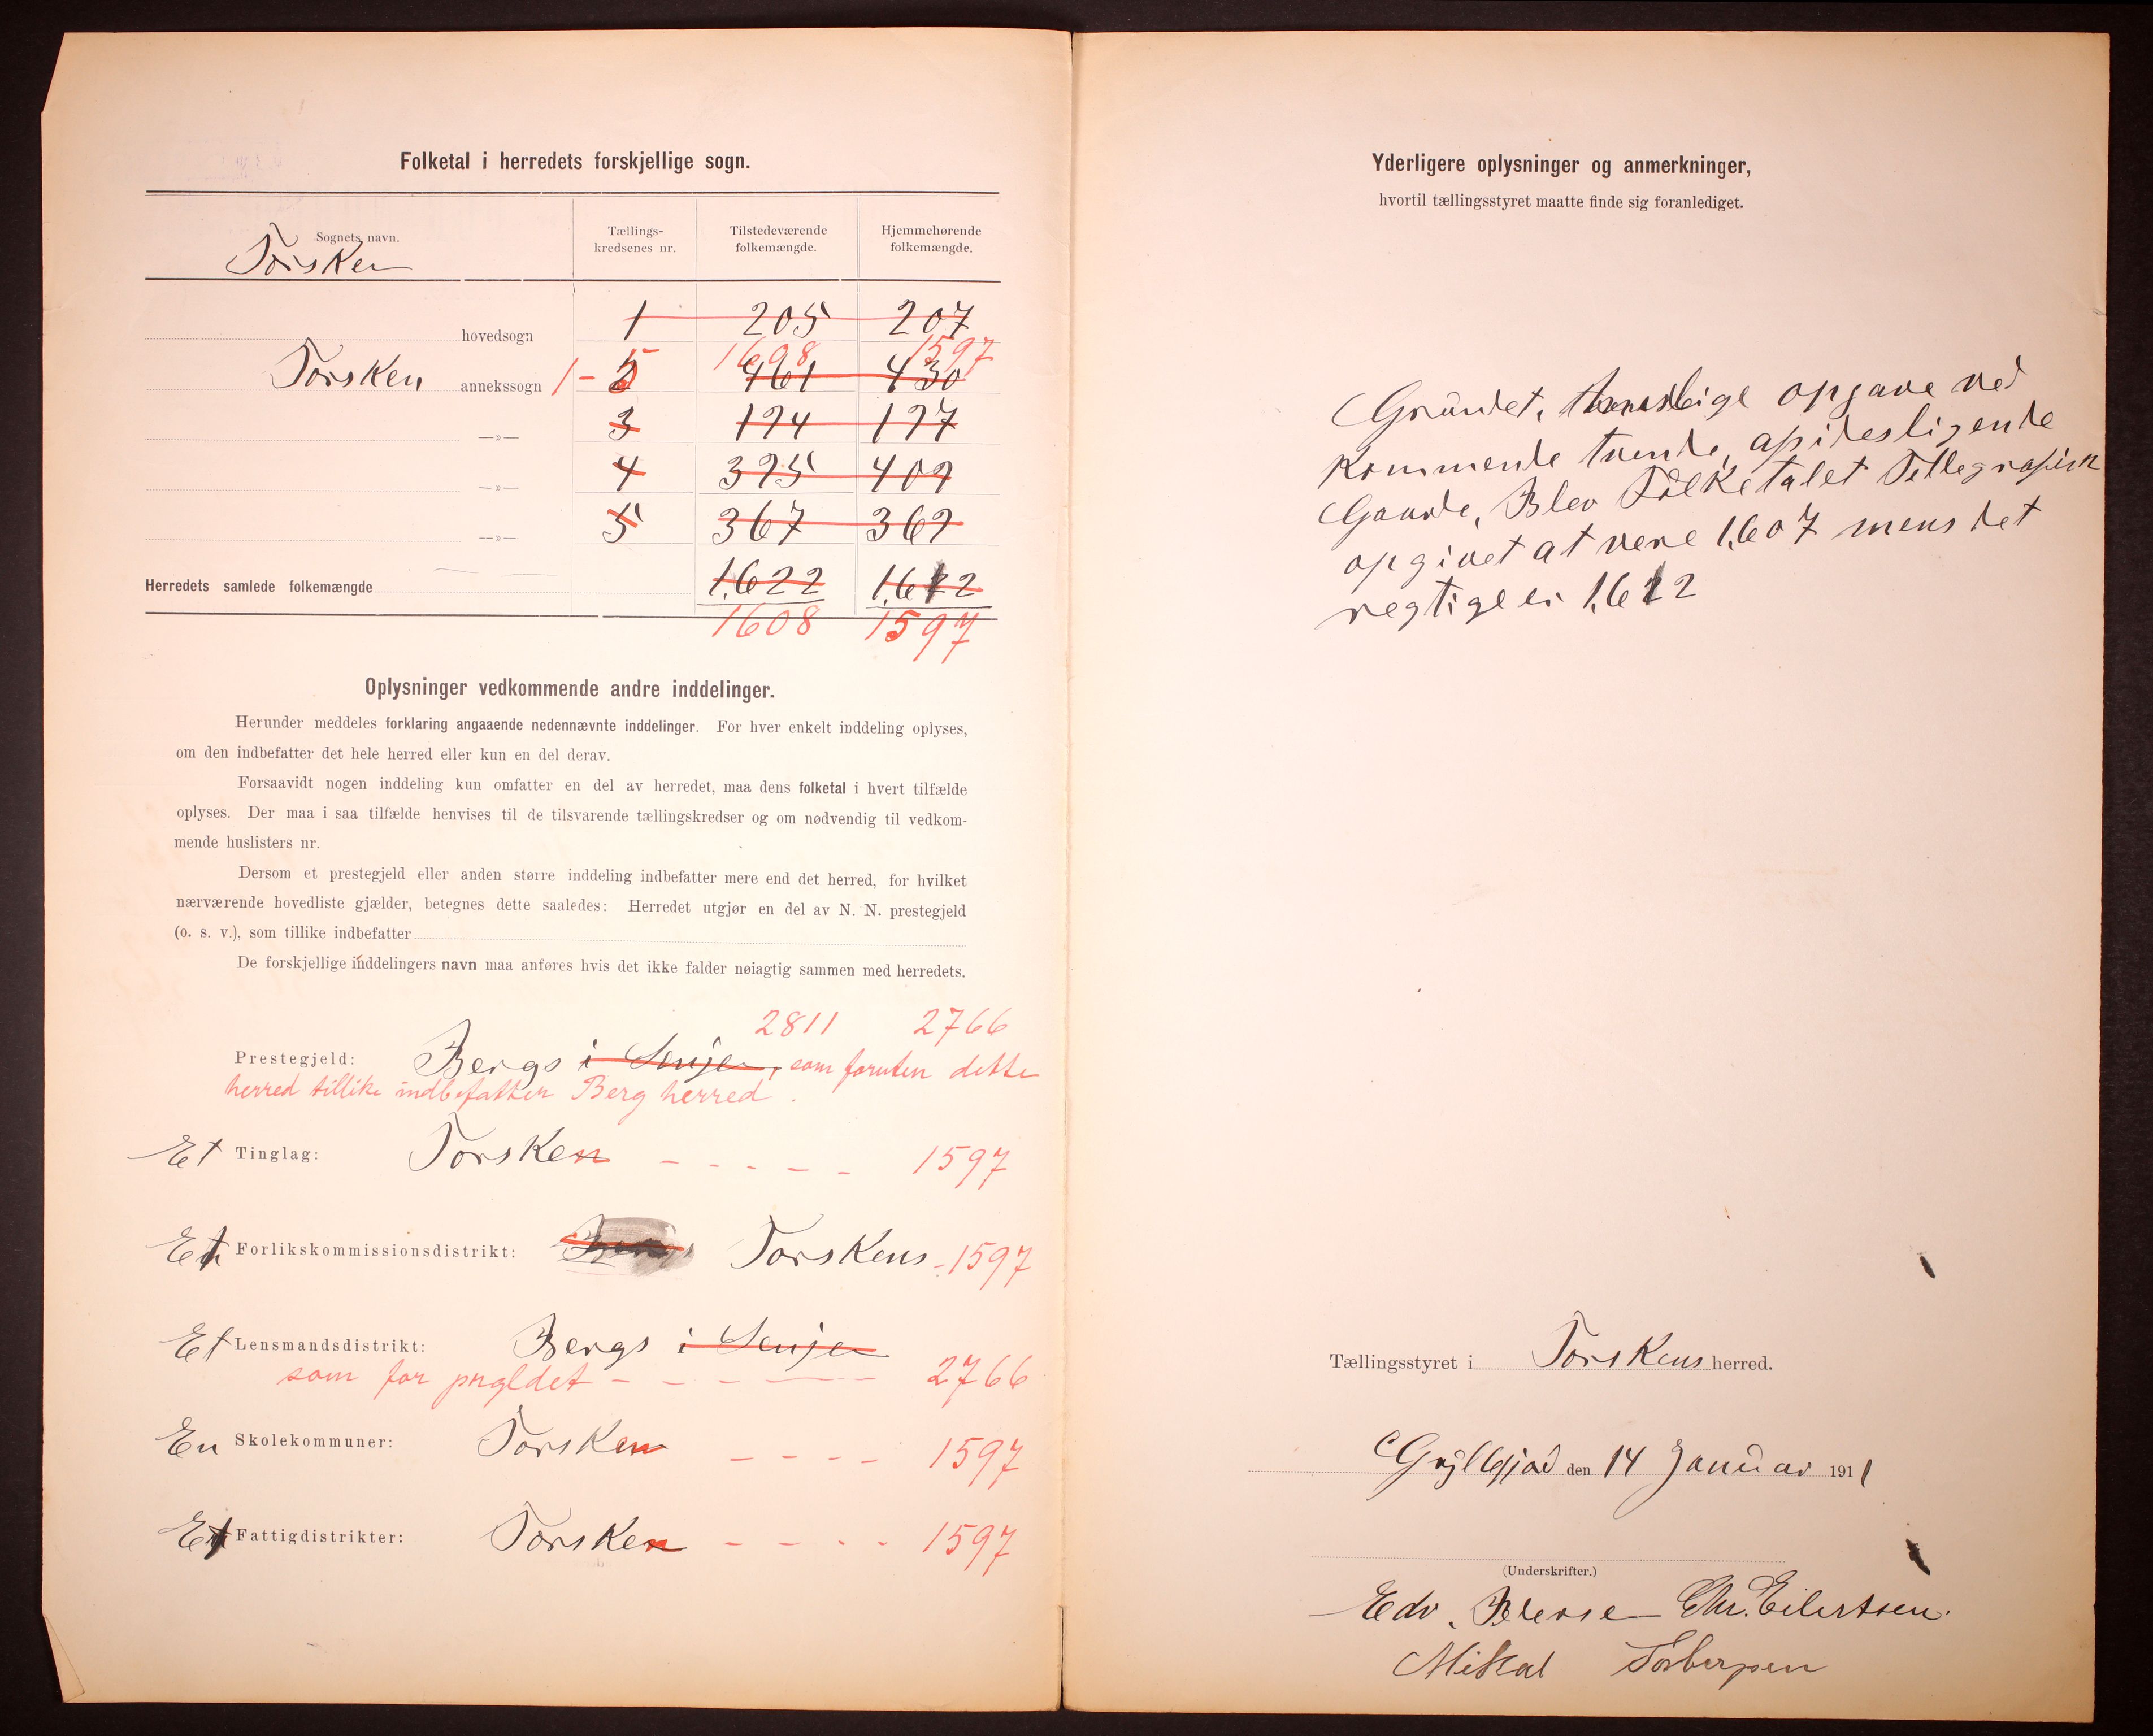 Folketal i herredets forskjellige sogn.
Sognets navn.
Tællings-
kredsenes nr.
Tilstedeværende
folkemængde.
Hjemmehørende
folkemængde.
Torsken
hovedsogn 1 205 207
1608 1597
Torsken annekssogn 1-5 2 461 430
—»— 3 194 197
—»— 4 395 409
—»— 5 367 369
Herredets samlede folkemængde 1.622 1.612
1608 1597
Oplysninger vedkommende andre inddelinger.
Herunder meddeles forklaring angaaende nedennævnte inddelinger. For hver enkelt inddeling oplyses,
om den indbefatter det hele herred eller kun en del derav.
Forsaavidt nogen inddeling kun omfatter en del av herredet, maa dens folketal i hvert tilfælde
oplyses. Der maa i saa tilfælde henvises til de tilsvarende tællingskredser og om nødvendig til vedkom-
mende huslisters nr.
Dersom et prestegjeld eller anden større inddeling indbefatter mere end det herred, for hvilket
nærværende hovedliste gjælder, betegnes dette saaledes: Herredet utgjør en del av N. N. prestegjeld
(o. s. v.), som tillike indbefatter
De forskjellige inddelingers navn maa anføres hvis det ikke falder nøiagtig sammen med herredets.
2811 2766
Prestegjeld: Bergs i Senjen, som foruten dette
herred tillike indbefatter Berg herred.
Et Tinglag: Torsken - - - - - 1597
Et Forlikskommissionsdistrikt: Bergs Torskens - 1597
Et Lensmandsdistrikt: Bergs i Senjen
som for prgjeldet - - - - - 2766
En Skolekommuner: Torsken - - - - 1597
Et Fattigdistrikter: Torsken - - - - - 1597
Yderligere oplysninger og anmerkninger,
hvortil tællingsstyret maatte finde sig foranlediget.
Grundet, opgave ved
kommende
Gaarde, Blev Folketalet Tellegrafisk
opgivet at vere 1.607 mens det
regtige er 1.612
Tællingsstyret i Torskens herred.
den 14 Januar 1911
(Underskrifter.)
Edv. Chr. Eilertsen.
Mikal Torbergsen